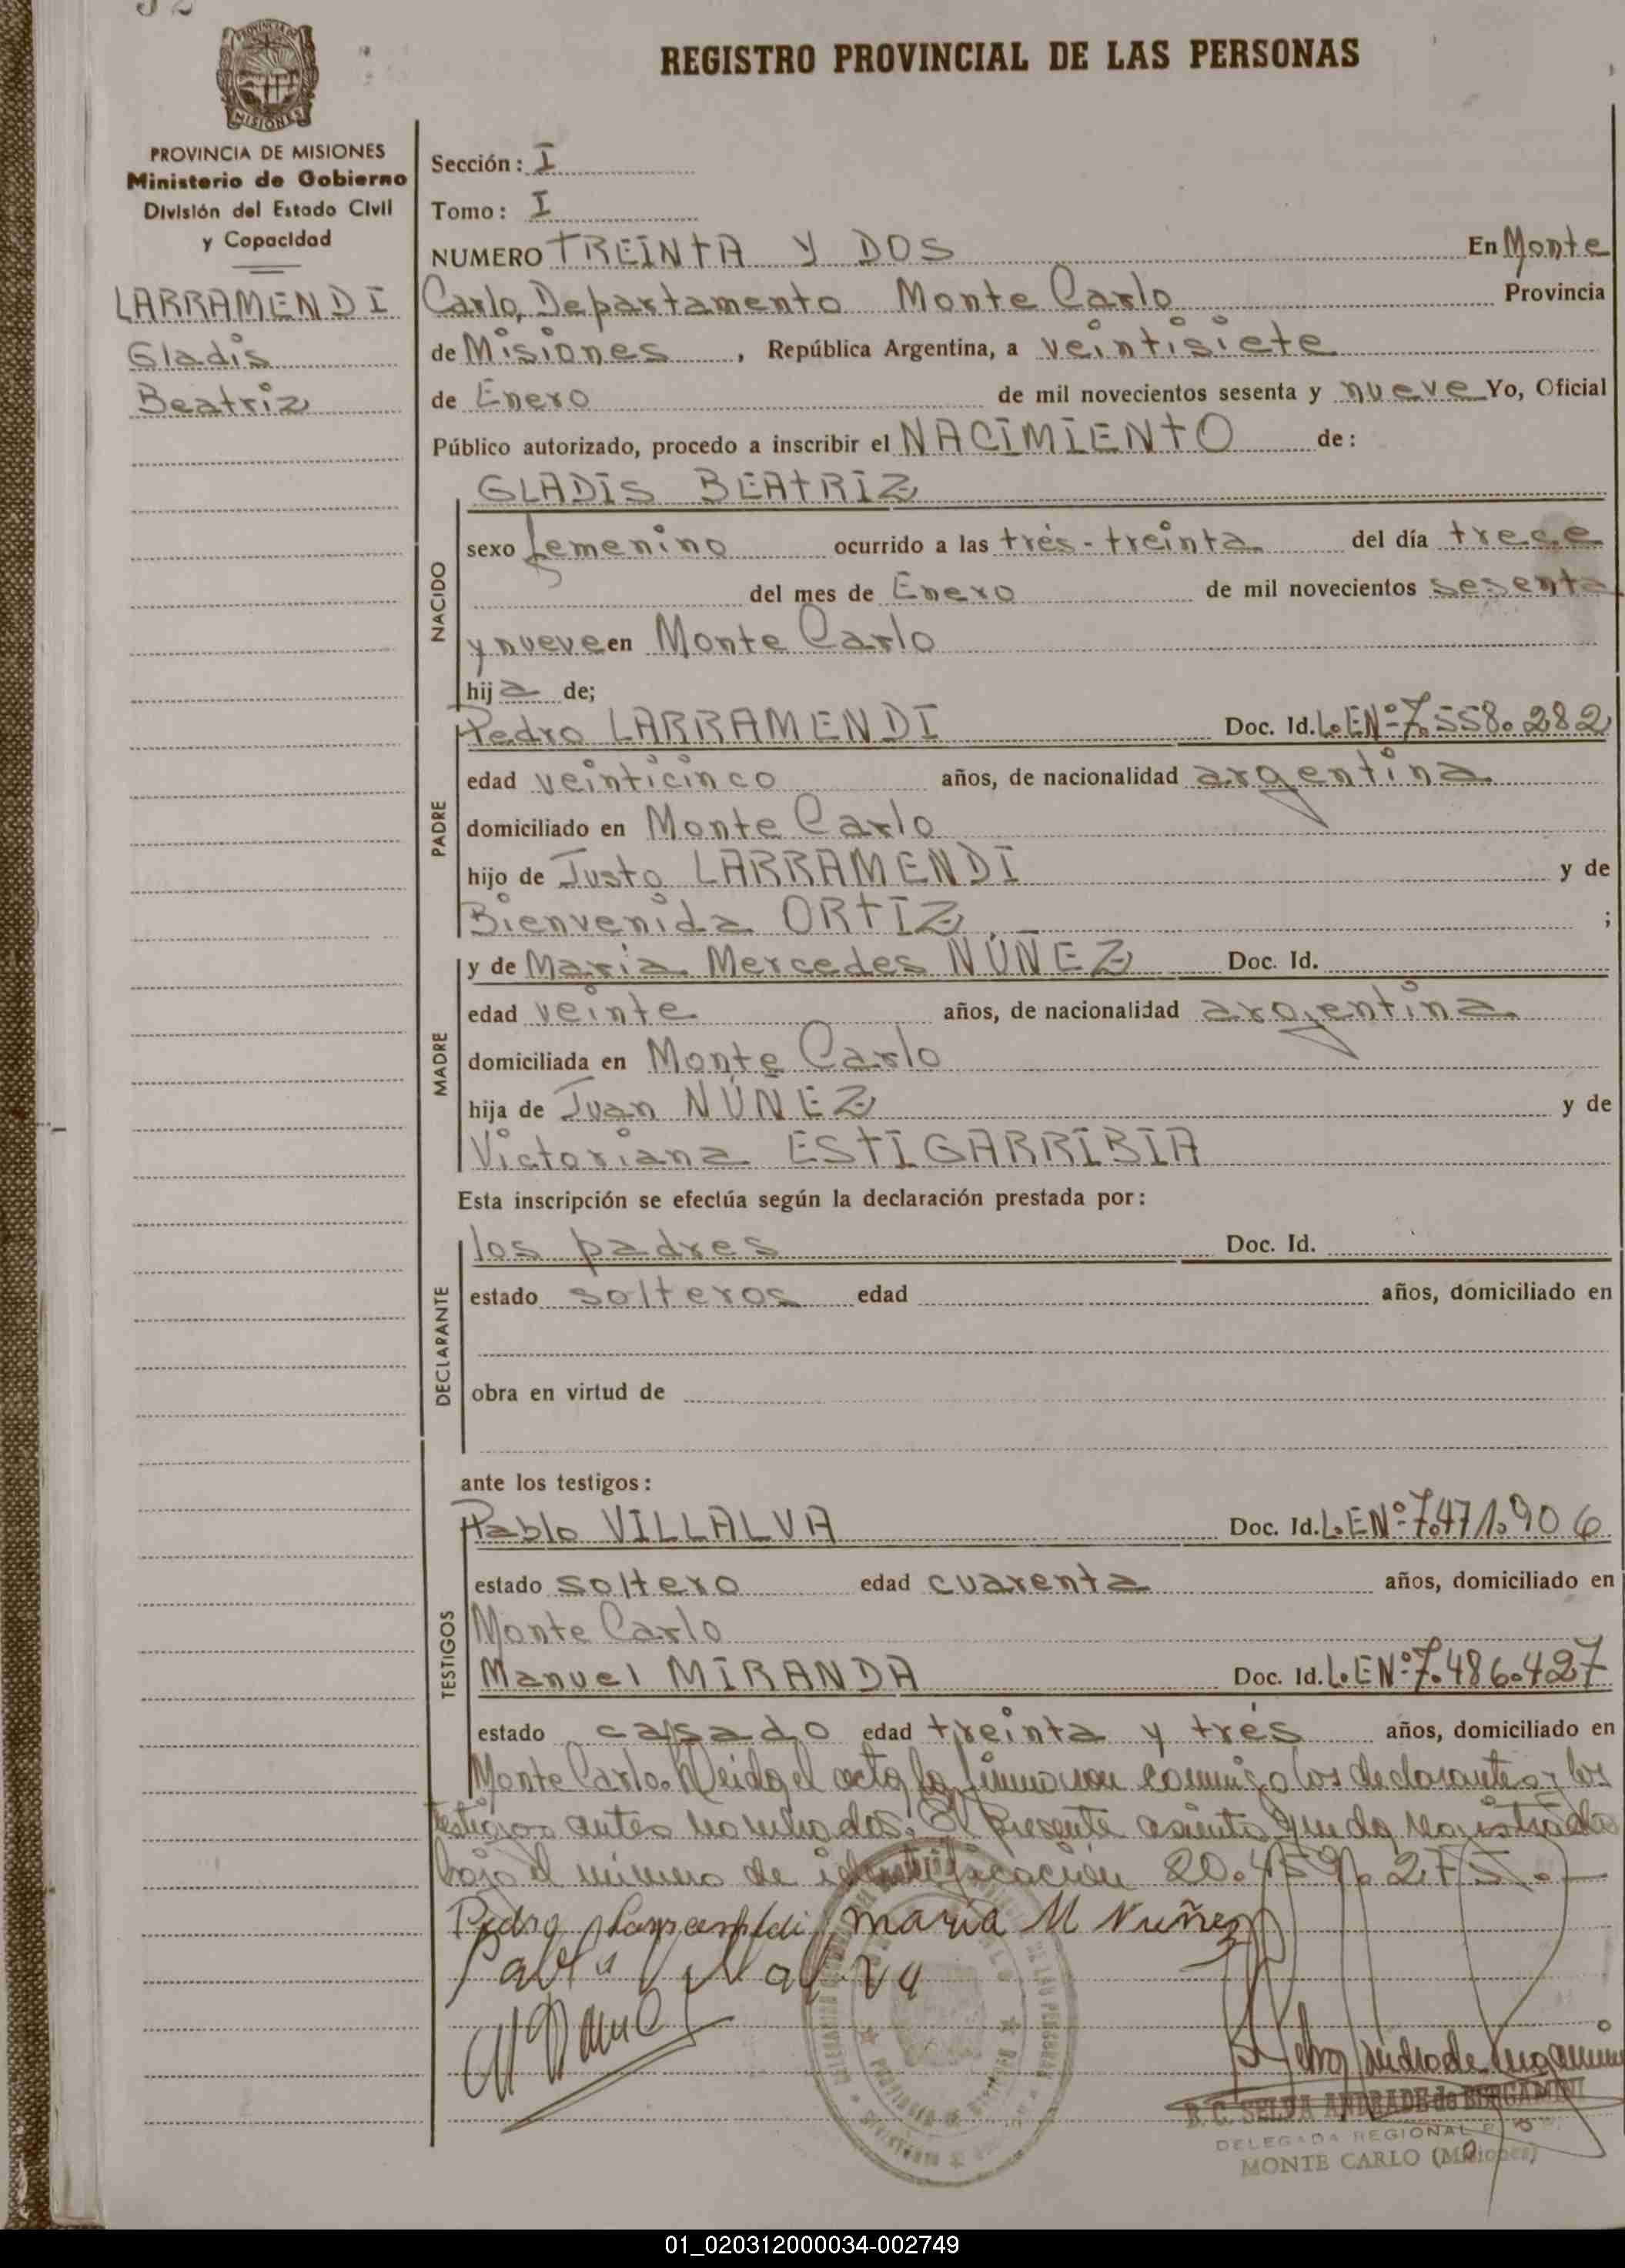 32
REGISTRO PROVINCIAL DE LAS PERSONAS
MISIONES
PROVINCIA DE MISIONES
Ministerio de Gobierno
División del Estado Civil
y Capacidad
LARRAMENDI
Gladis
Beatriz
Sección: I
Tomo: I
NUMERO TREINTA Y DOS En Monte
Carlo, Departamento Monte Carlo Provincia
de Misiones, República Argentina, a veintisiete
de Enero de mil novecientos sesenta y nueve Yo, Oficial
Público autorizado, procedo a inscribir el NACIMIENTO de:
GLADIS BEATRIZ
NACIDO
sexo femenino ocurrido a las trés-treinta del día trece
del mes de Enero de mil novecientos sesenta
y nueve en Monte Carlo
hija de;
PADRE
Pedro LARRAMENDI Doc. Id. L.E Nº 7.558.282
edad veinticinco años, de nacionalidad argentina
domiciliado en Monte Carlo
hijo de Justo LARRAMENDI y de
Bienvenida ORTIZ ;
MADRE
y de María Mercedes NÚÑEZ Doc. Id.
edad veinte años, de nacionalidad argentina
domiciliada en Monte Carlo
hija de Juan NÚÑEZ y de
Victoriana ESTIGARRIBIA
Esta inscripción se efectúa según la declaración prestada por:
DECLARANTE
los padres Doc. Id.
estado solteros edad años, domiciliado en
obra en virtud de
ante los testigos:
TESTIGOS
Pablo VILLALVA Doc. Id. L.E Nº 7.471.906
estado soltero edad cuarenta años, domiciliado en
Monte Carlo
Manuel MIRANDA Doc. Id. L.E Nº 7.486.427
estado casado edad treinta y trés años, domiciliado en
Monte Carlo. Leida el acta la firmaron conmigo los declarantes y los
testigos antes nombrados. El presente asiento queda registrado
bajo el número de identificación 20.459.275.-
Pedro Larramendi maria M Nuñez
Pablo Villalva
B. C. SELVA ANDRADE de BERGAMINI
DELEGADA REGIONAL
MONTE CARLO (Misiones)
01_020312000034-002749